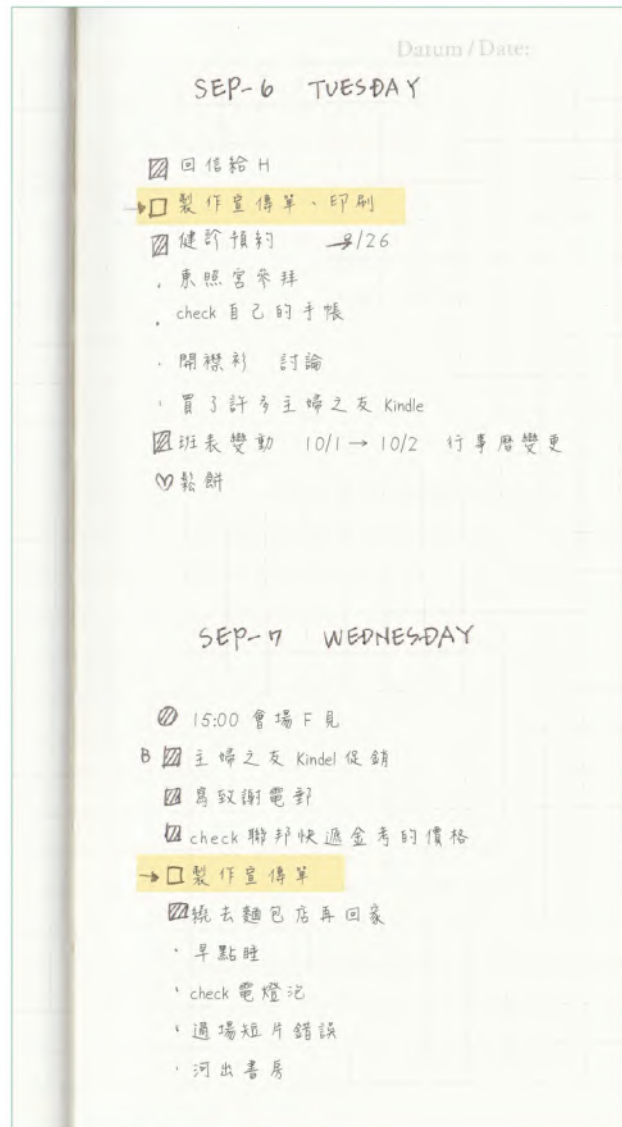 Datum / Date:
SEP-6 TUESDAY
回信給 H
製作宣傳單、印刷
健診預約 9/26
東照宮參拜
check 自己的手帳
開襟衫 討論
買了許多主婦之友 Kindle
班表變動 10/1 → 10/2 行事曆變更
♡鬆餅
SEP-7 WEDNESDAY
15:00 會場 F 見
B 主婦之友 Kindel 促銷
寫致謝電郵
check 聯邦快遞金考的價格
製作宣傳單
繞去麵包店再回家
早點睡
check 電燈泡
過場短片錯誤
河出書房